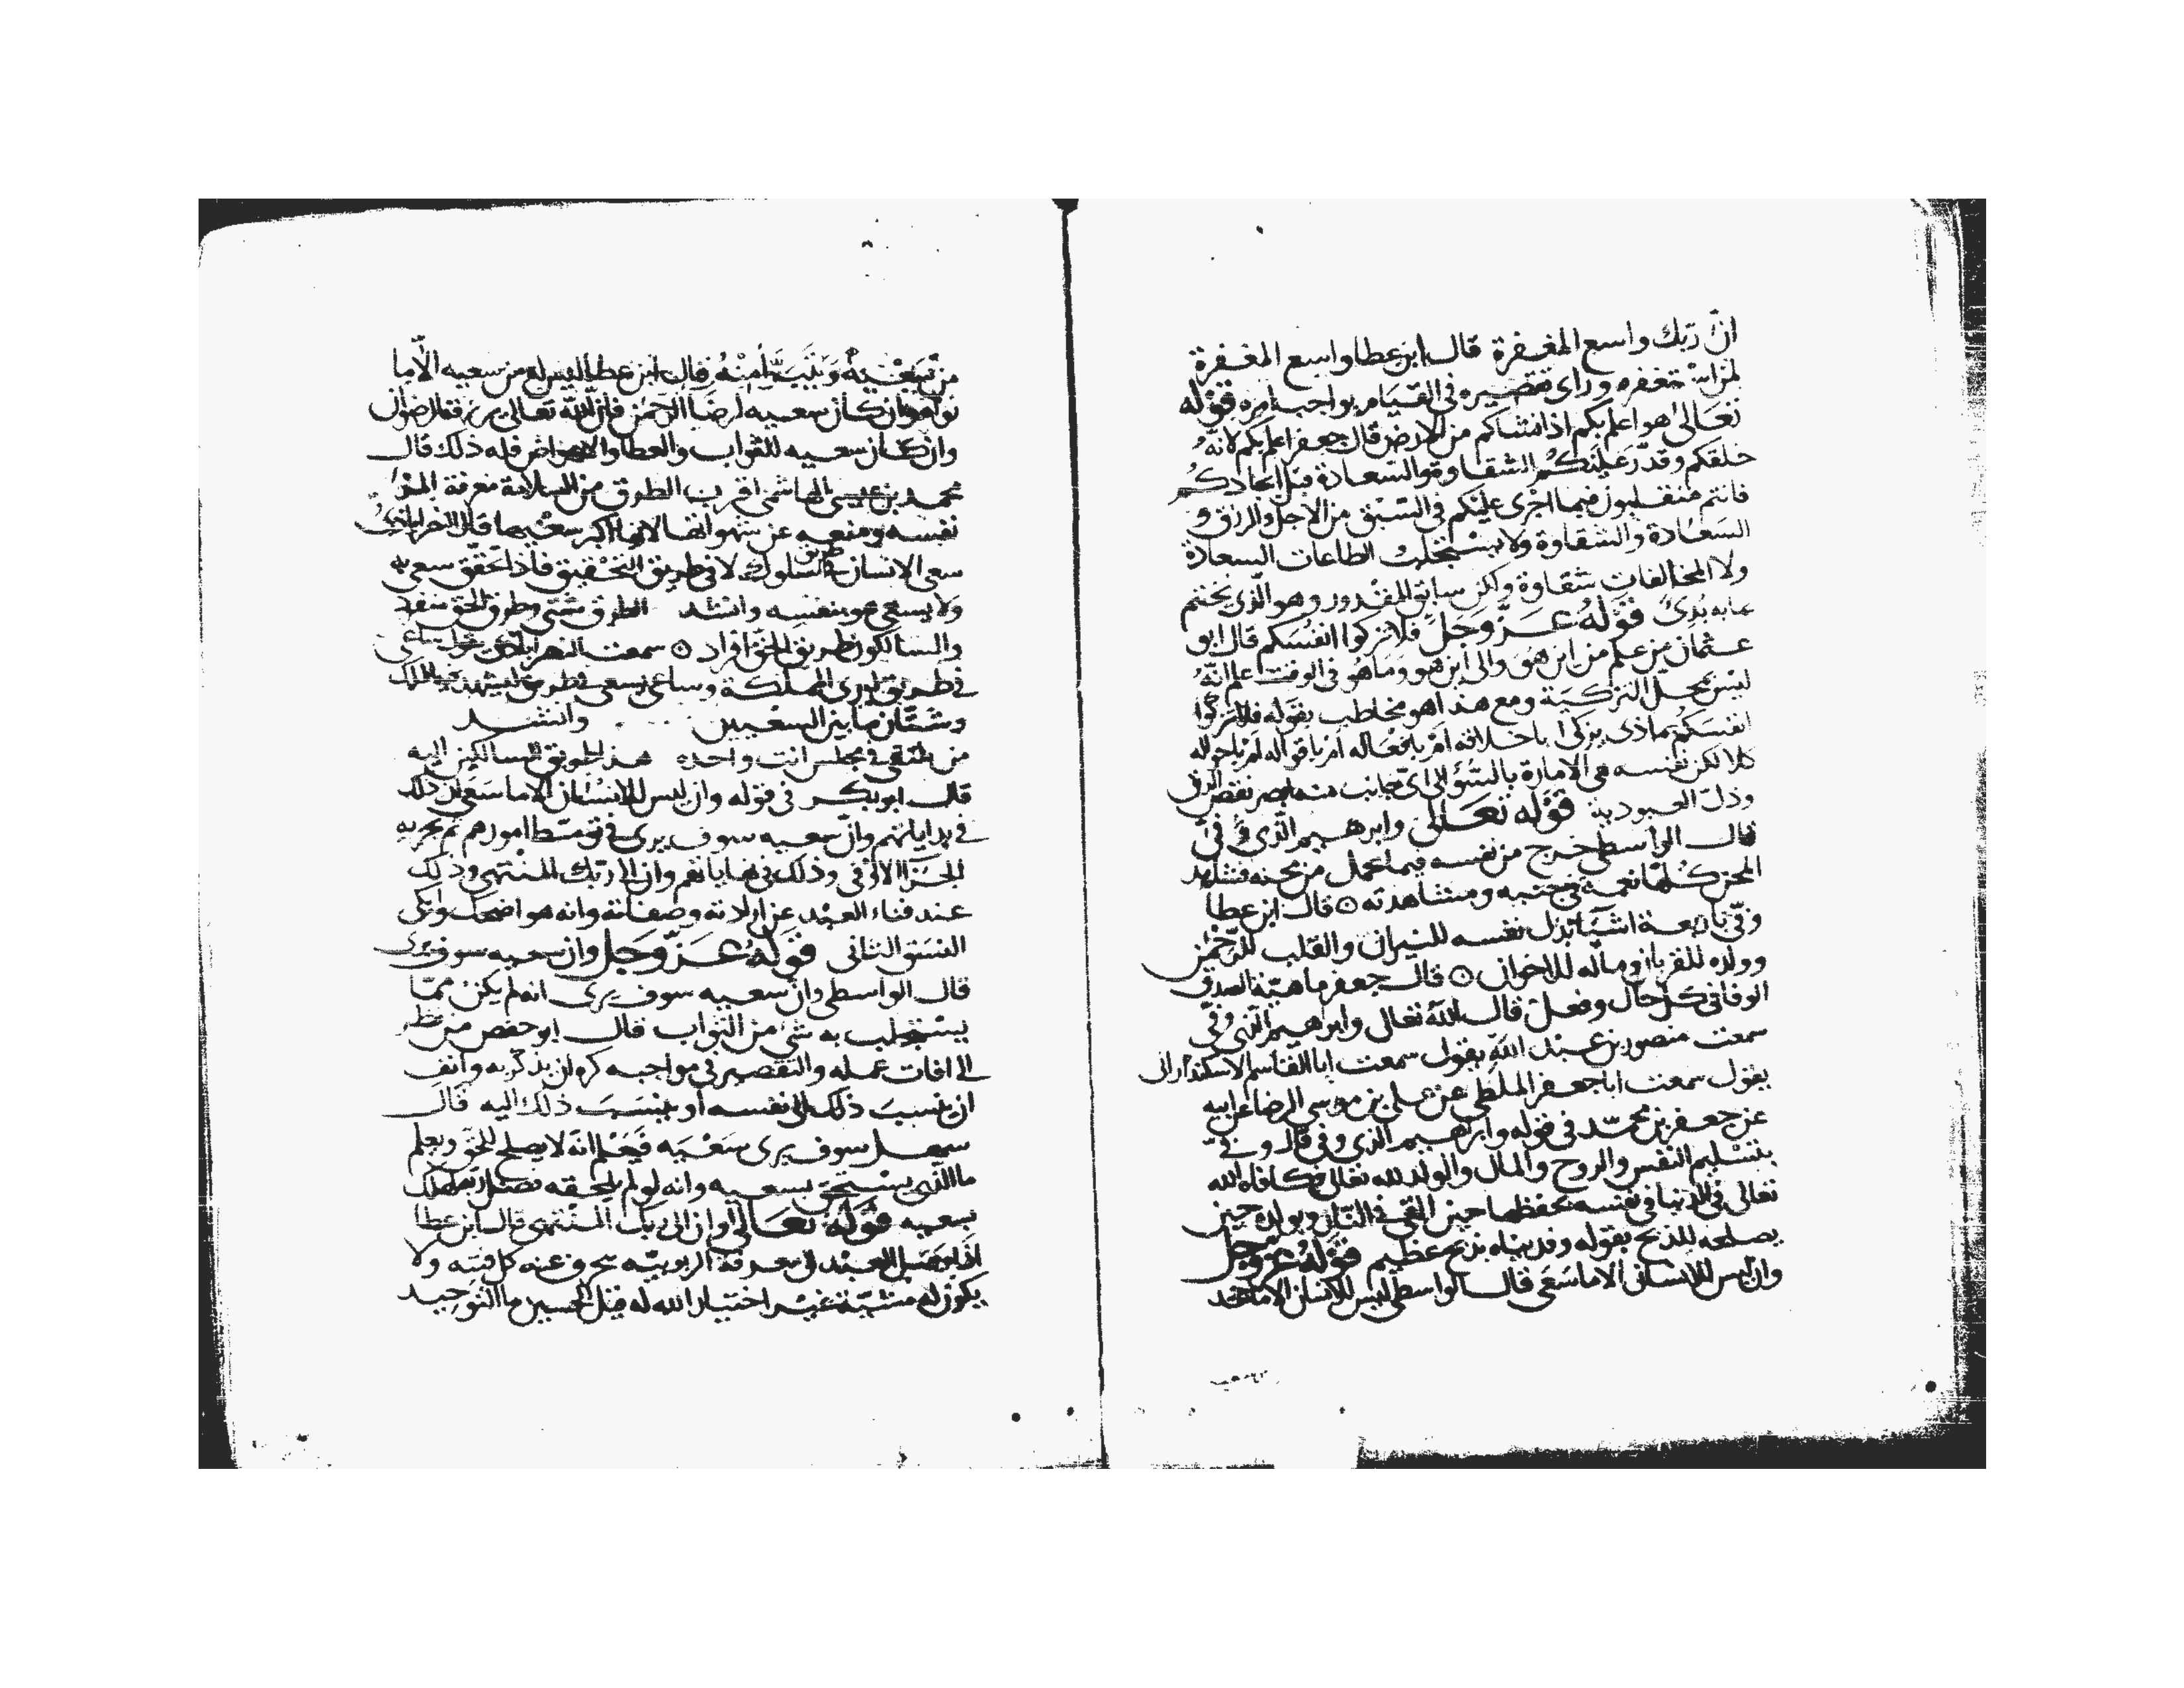 انّ ربك واسع المغفرة قال ابن عطا واسع المغفرة
لمن استغفره وراى تقصيره فى القيام بواجب امره قوله
تعالى هو اعلم بكم اذ انشاكم من الارض قال جعفر اعلم بكم لانّه
خلقكم وقدّر عليكم الشقاوة والسعادة قبل ايجادكم
فانتم منقلبون فيما اجرى عليكم فى السّبق من الاجل والرزق و
السعادة والشقاوة ولا يستجلب الطاعات السعادة
ولا المخالفات شقاوة ولكن سابق المقدور وهو الّذى يختم
بما به بُدئ قوله عزّ وجلّ فلا تزكوا انفسكم قال ابو
عثمان من علم من اين هو والى اين هو وما هو فى الوقت علم انّه
ليس بمحل التزكية ومع هذا هو مخاطب بقوله فلا تزكوا
انفسكم بماذى يزكى اباخلاقه ام بافعاله ام باقواله ام باحواله
كلا لكن نفسه هى الامارة بالسّوء الى اىّ جانب منه ابصر نقص الرق
وذلّ العبودية قوله تعالى وابرهيم الّذى وفّىّ
قال الواسطى خرج من نفسه فيما تحمل من محنه فشاهد
المحن كلها نعمة فى جنبه ومشاهدته ⊙ قال ابن عطا
وفّى باربعة اشيآء بذل نفسه للنيران والقلب للرّحمن
وولده للقربان وماله للاخوان ⊙ قال جعفر ماهيّة الصدق
الوفا فى كل حال وفعل قال الله تعالى وابرهيم الّذى وفّى
سمعت منصور بن عبد الله يقول سمعت ابا القاسم الاسكندرانى
يقول سمعت ابا جعفر الملطى عن على بن موسى الرضا عن ابيه
عن جعفر بن محمّد فى قوله وابرهيم الذى وفى قال وفىّ
بتسليم النفس والروح والمال والولد لله تعالى فكافاه الله
تعالى فى الدنيا فى نفسه بحفظها حين القى فى النّار وبولده حين
بصلحه للذبح بقوله وفديناه بذبح عظيم قوله عز وجل
وان ليس للانسان الا ما سعى قال الواسطى ليس للانسان الا ما
من سعيه قال ابن عطا ليس له من سعيه الّا ما
نواه وان كان سعيه لرضا الرحمن فان الله تعالى يرزقه الرضوان
وان كان سعيه للثواب والعطا والاعواض فله ذلك قال
محمد بن عيسى الهاشمى اقرب الطرق من السلامة معرفة المرء
نفسه ومنعه عن شهواتها لانها اكبر سعيها قال النصراباذى
سعى الانسان فى طريق السلوك لا فى طريق التحقيق فاذا تحقق سعى به
ولا يسعى هو بنفسه وانشد الطرق شتى وطرق الحق منفرد
والسالكون طريق الحق افراد ⊙ سمعت النصراباذى يقول ساعى
فى طريق المملكة وساعى يسعى فى طريق
وشتّان ما بين السعيين وانشد
من بمجلس انت واحده هذا طريق السالكين اليه
قال ابو بكر فى قوله وان ليس للانسان الا ما سعى ان ذلك
فى بداياتهم وانّ سعيه سوف يرى فى توسّط امورهم ثم يجزيه
الجزا الاوفى وذلك فى نهاياتهم وان الى ربك المنتهى وذلك
عند فناء العبد عن ارادته وصفاته وانه هو اضحك وابكى
النسق الثانى قوله عزّ وجلّ وان سعيه سوف يرى
قال الواسطى وان سعيه سوف يرى انه لم يكن ممّا
يستجلب به شئ من الثواب قال ابو حفص من نظر
الى افات عمله والتقصير فى مواجبه كره ان يذكر به وانف
ان ينسب ذلك الى نفسه او ينسب ذلك اليه قال
سهل سوف يرى سعيه فيعلم انّه لا يصلح للحق ويعلم
ما الّذى يستحق بسعيه وانه لو لم يلحقه فضل ربه لهلك
بسعيه قوله تعالى وان الى ربك المنتهى قال ابن عطا
اذا وصل العبد الى معرفة الربوبيّة عنه كل فتنه ولا
يكون له مشيّة غير اختيار الله له قيل للحسين ما التوحيد